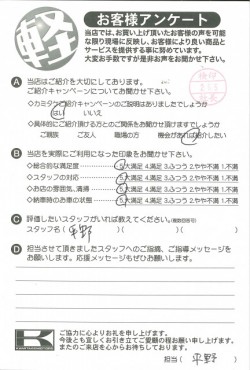 軽
お客様アンケート
当店では、お買い上げ頂いたお客様の声を可能
な限り現場に反映し、お客様により良い商品と
サービスを提供する事に努めています。
大変お手数ですが是非お声をお聞かせ下さい。
A 当店はご紹介を大切にしております。
ご紹介キャンペーンについてお聞かせ下さい。
◇カミタケご紹介キャンペーンのご説明はありましたでしょうか
はい いいえ
◇具体的にご紹介頂ける方とのご関係をお聞かせ頂けますでしょうか
ご親族 ご友人 職場の方 機会があれば紹介したい
B 当店を実際にご利用になった印象をお聞かせ下さい。
◇総合的な満足度 5.大満足 4.満足 3.ふつう 2.やや不満 1.不満
◇スタッフの対応 5.大満足 4.満足 3.ふつう 2.やや不満 1.不満
◇お店の雰囲気、清掃 5.大満足 4.満足 3.ふつう 2.やや不満 1.不満
◇納車時のお車の状態 5.大満足 4.満足 3.ふつう 2.やや不満 1.不満
C 評価したいスタッフがいれば教えてください。(複数回答可)
スタッフ名( 平野 )( )( )
D 担当させて頂きましたスタッフへのご指摘、ご指導メッセージを
お願いします。応援メッセージもぜひお願いします。
K
ご協力に心よりお礼を申し上げます。
今後とも宜しくお引き立てご愛顧の程お願い申し上げます。
またのご来店を心からお待ちしております。
担当( 平野 )